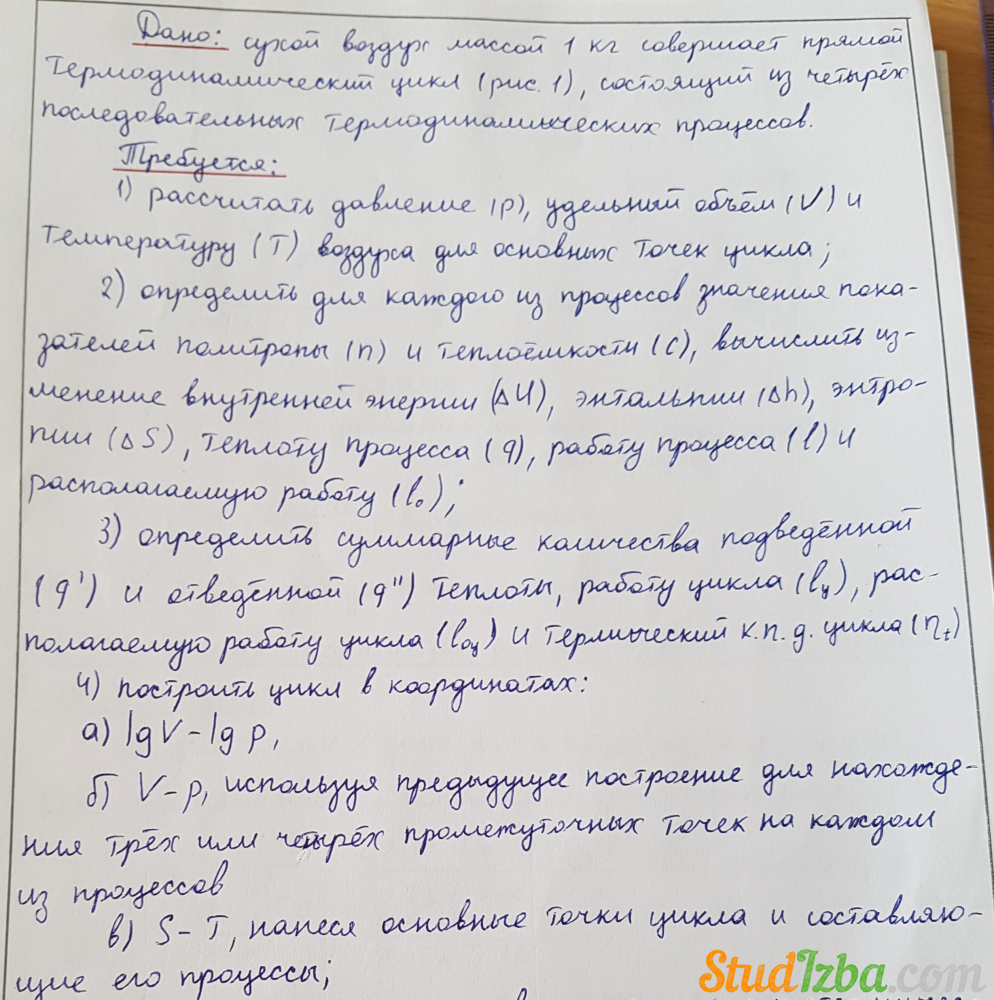 Дано: сухой воздух массой 1 кг совершает прямой
термодинамический цикл (рис. 1), состоящий из четырёх
последовательных термодинамических процессов.
Требуется:
1) рассчитать давление (p), удельный объём (V) и
температуру (T) воздуха для основных точек цикла;
2) определить для каждого из процессов значения пока-
зателей политропы (n) и теплоёмкости (c), вычислить из-
менение внутренней энергии (ΔU), энтальпии (Δh), энтро-
пии (ΔS), теплоту процесса (q), работу процесса (l) и
располагаемую работу (l₀);
3) определить суммарные количества подведённой
(q') и отведённой (q'') теплоты, работу цикла (lц), рас-
полагаемую работу цикла (l₀ц) и термический к.п.д. цикла (ηt)
4) построить цикл в координатах:
а) lg V – lg p,
б) V – p, используя предыдущее построение для нахожде-
ния трёх или четырёх промежуточных точек на каждом
из процессов
в) S – T, нанеся основные точки цикла и составляю-
щие его процессы;
StudIzba.com